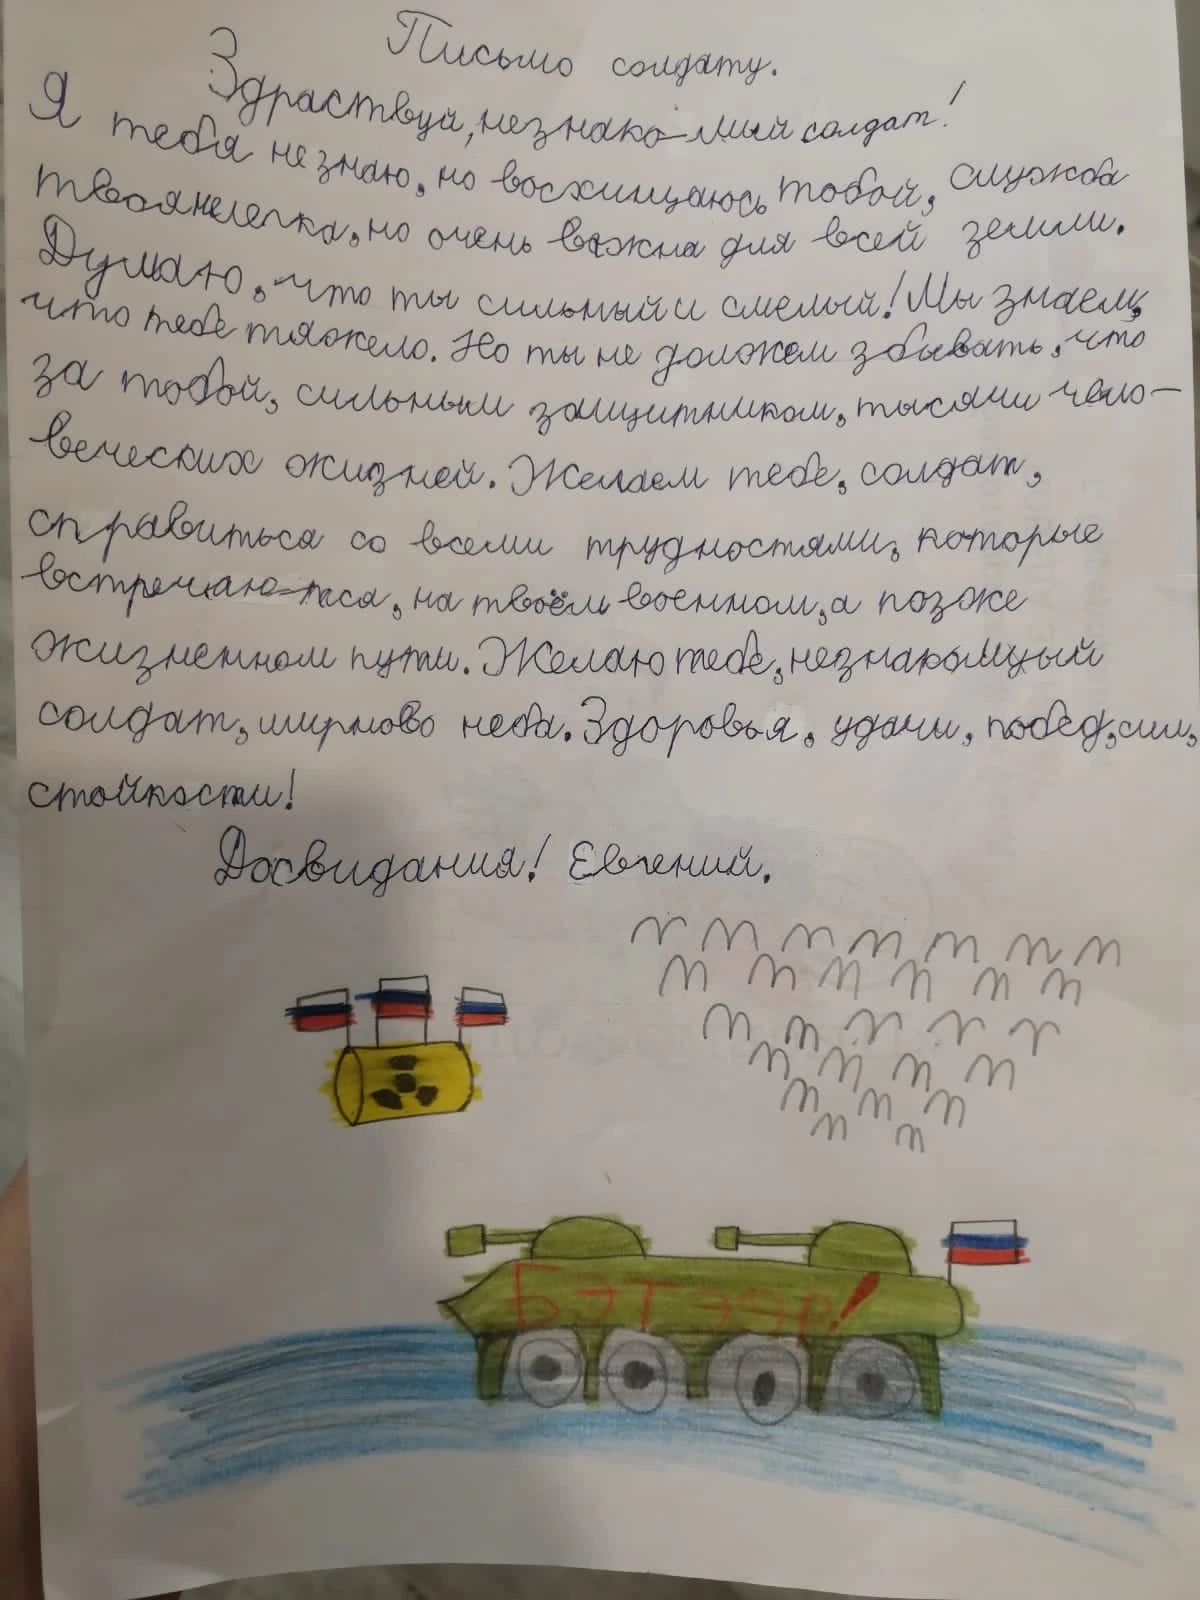 Письмо солдату.
Здраствуй, незнако-мый солдат!
Я тебя не знаю, но восхищаюсь тобой, служба
твоя нелегка, но очень важна для всей земли.
Думаю, что ты сильный и смелый! Мы знаем,
что тебе тяжело. Но ты не должен збывать, что
за тобой, сильным защитником, тысячи чело-
веческих жизней. Желаем тебе, солдат,
справиться со всеми трудностями, которые
встречаю-тся, на твоём военном, а позже
жизненном пути. Желаю тебе, незнакомый
солдат, мирново неба. Здоровья, удачи, побед, сил,
стойкости!
Досвидания! Евгений.
БЭТЭЭР!